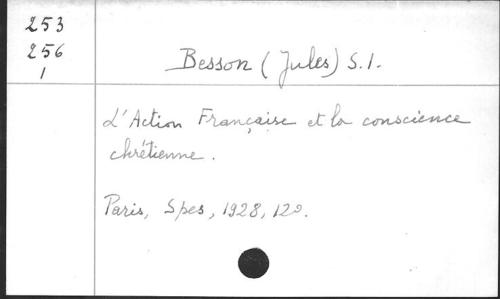 253
256
1
Besson (Jules) S.I.
L'Action Française et la conscience
chrétienne.
Paris, Spes, 1928, 12º.